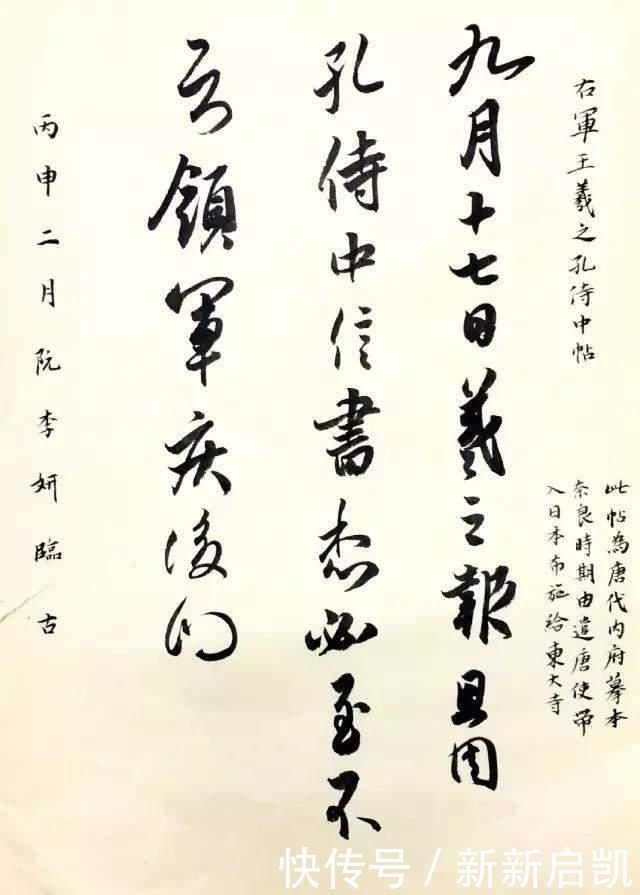 右軍王羲之孔侍中帖
此帖為唐代内府摹本
奈良時期由遣唐使帶
入日本布施給東大寺
九月十七日羲之報且因
孔侍中信書想必至不
知領軍疾後問
丙申二月阮李妍臨古
快传号/新新启凯